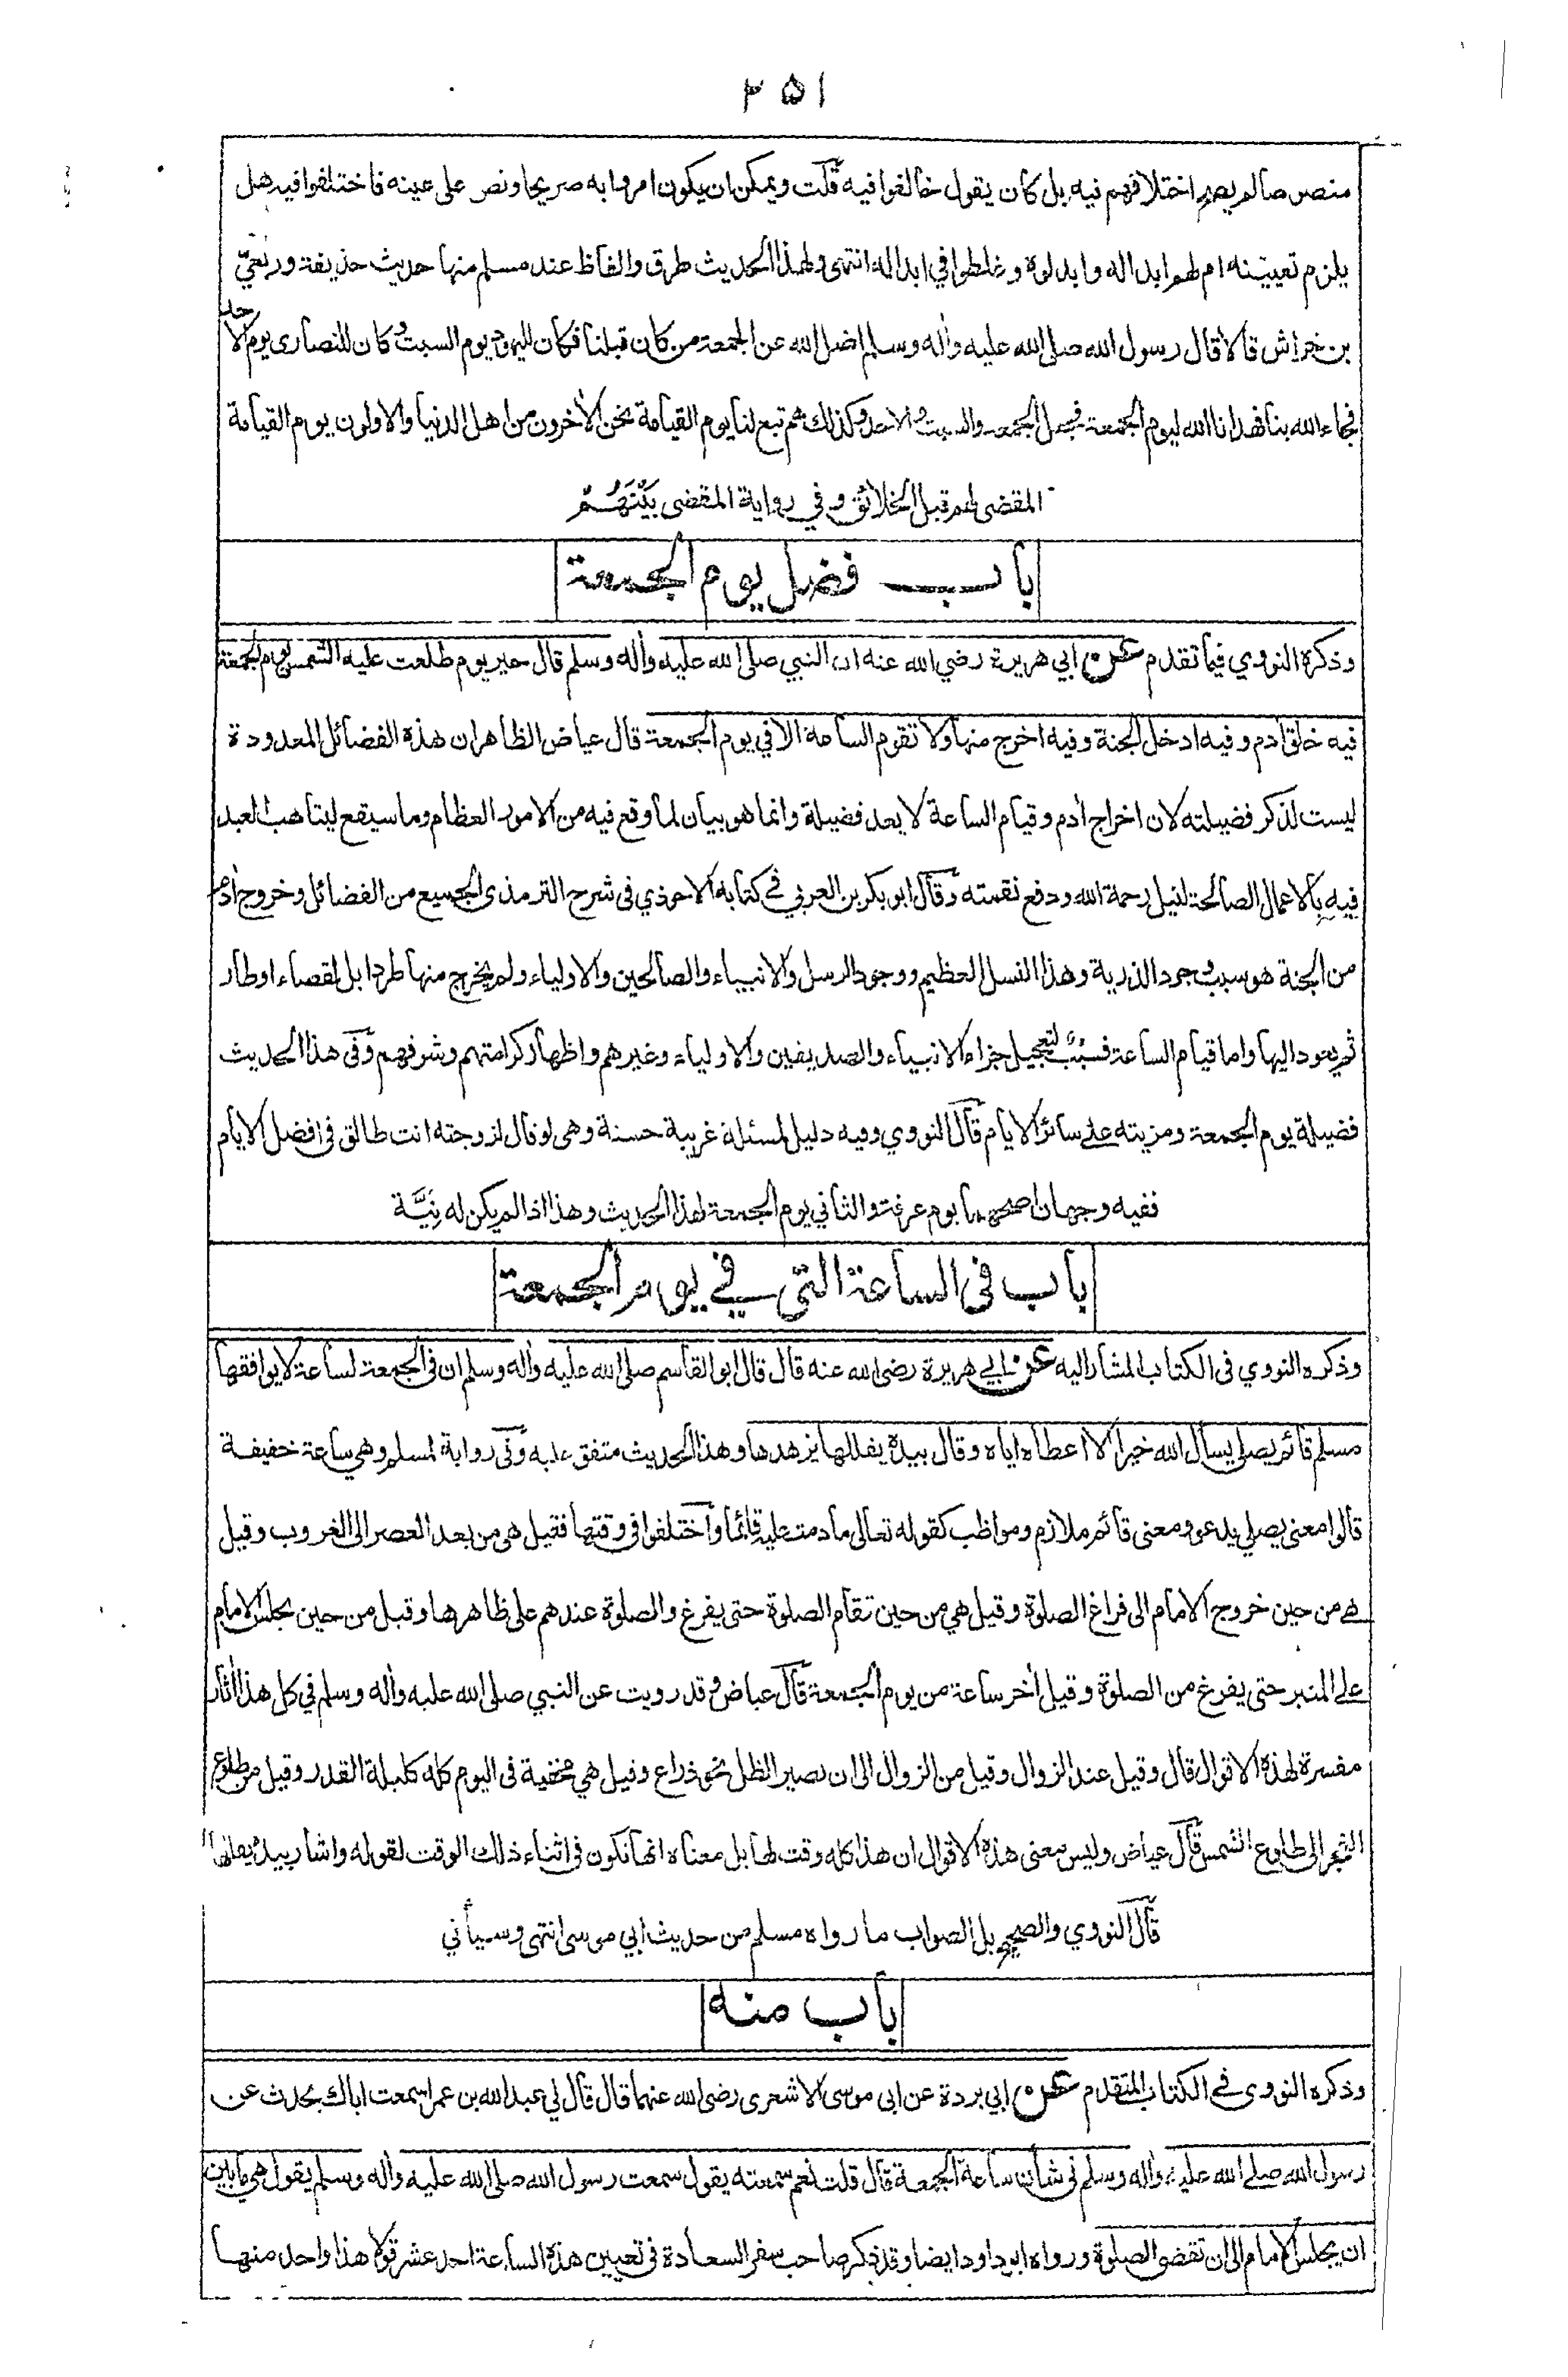 ٢٥١
منصوصا لم يصح اختلافهم فيه بل كان يقول خالفوا فيه قلت ويمكن ان يكون امروا به صريحا ونص على عينه فاختلفوا فيه هل
يلزم تعيينه ام لهم ابداله وابدلوه وغلطوا في ابداله انتهى ولهذا الحديث طرق والفاظ عند مسلم منها حديث حذيفة وربعي
بن خراش قالا قال رسول الله صلى الله عليه وأله وسلم اضل الله عن الجمعة من كان قبلنا فكان لليهود يوم السبت وكان للنصارى يوم الاحد
فجاء الله بنا فهدانا الله ليوم الجمعة فجعل الجمعة والسبت والاحد وكذلك هم تبع لنا يوم القيامة نحن الأخرون من اهل الدنيا والاولون يوم القيامة
المقضى لهم قبل الخلائق وفي رواية المقضى بَيْنَهُمْ
باب فضل يوم الجمعة
وذكره النووي فيما تقدم عن ابي هريرة رضي الله عنه ان النبي صلى الله عليه وأله وسلم قال خير يوم طلعت عليه الشمس يوم الجمعة
فيه خلق أدم وفيه ادخل الجنة وفيه اخرج منها ولا تقوم الساعة الا في يوم الجمعة قال عياض الظاهر ان هذه الفضائل المعدودة
ليست لذكر فضيلته لان اخراج أدم وقيام الساعة لا يعد فضيلة وانما هو بيان لما وقع فيه من الامور العظام وما سيقع ليتاهب العبد
فيه بالاعمال الصالحة لنيل رحمة الله ودفع نقمته وقال ابو بكر بن العربي في كتابه الاحوذي في شرح الترمذي الجميع من الفضائل وخروج أدم
من الجنة هو سبب وجود الذرية وهذا النسل العظيم ووجود الرسل والانبياء والصالحين والاولياء ولم يخرج منها طردا بل لقضاء اوطار
ثم يعود اليها واما قيام الساعة فسبب لتعجيل جزاء الانبياء والصديقين والاولياء وغيرهم واظهار كرامتهم وشرفهم وفي هذا الحديث
فضيلة يوم الجمعة ومزيته على سائر الايام قال النووي وفيه دليل لمسئلة غريبة حسنة وهى لو قال لزوجته انت طالق في افضل الايام
ففيه وجهان اصحهما يوم عرفة والثاني يوم الجمعة لهذا الحديث وهذا اذا لم يكن له نِيَّة
باب في الساعة التي في يوم الجمعة
وذكره النووي في الكتاب المشار اليه عن ابي هريرة رضى الله عنه قال قال ابو القاسم صلى الله عليه وأله وسلم ان في الجمعة لساعة لا يوافقها
مسلم قائم يصلي يسأل الله خيرا الا اعطاه اياه وقال بيده يقللها يزهدها وهذا الحديث متفق عليه وفي رواية لمسلم وهي ساعة خفيفة
قالوا معنى يصلي يدعو ومعنى قائم ملازم ومواظب كقوله تعالى ما دمت عليه قائما واختلفوا في وقتها فقيل هى من بعد العصر الى الغروب وقيل
هى من حين خروج الامام الى فراغ الصلوة وقيل هي من حين تقام الصلوة حتى يفرغ والصلوة عندهم على ظاهرها وقيل من حين يجلس الامام
على المنبر حتى يفرغ من الصلوة وقيل أخر ساعة من يوم الجمعة قال عياض وقد رويت عن النبي صلى الله عليه وأله وسلم في كل هذا أثار
مفسرة لهذه الاقوال قال وقيل عند الزوال وقيل من الزوال الى ان يصير الظل نحو ذراع وقيل هي مخفية في اليوم كله كليلة القدر وقيل من طلوع
الفجر الى طلوع الشمس قال عياض وليس معنى هذه الاقوال ان هذا كله وقت لها بل معناه انها تكون في اثناء ذلك الوقت لقوله واشار بيده يقللها
قال النووي والصحيح بل الصواب ما رواه مسلم من حديث ابي موسى انتهى وسيأتي
باب منه
وذكره النووى في الكتاب المتقدم عن ابي بردة عن ابى موسى الاشعرى رضى الله عنهما قال قال لي عبد الله بن عمر اسمعت اباك يحدث عن
رسول الله صلى الله عليه وأله وسلم في شأن ساعة الجمعة قال قلت نعم سمعته يقول سمعت رسول الله صلى الله عليه وأله وسلم يقول هي ما بين
ان يجلس الامام الى ان تقضى الصلوة ورواه ابو داود ايضا وقد ذكر صاحب سفر السعادة في تعيين هذه الساعة احد عشر قولا هذا واحد منها